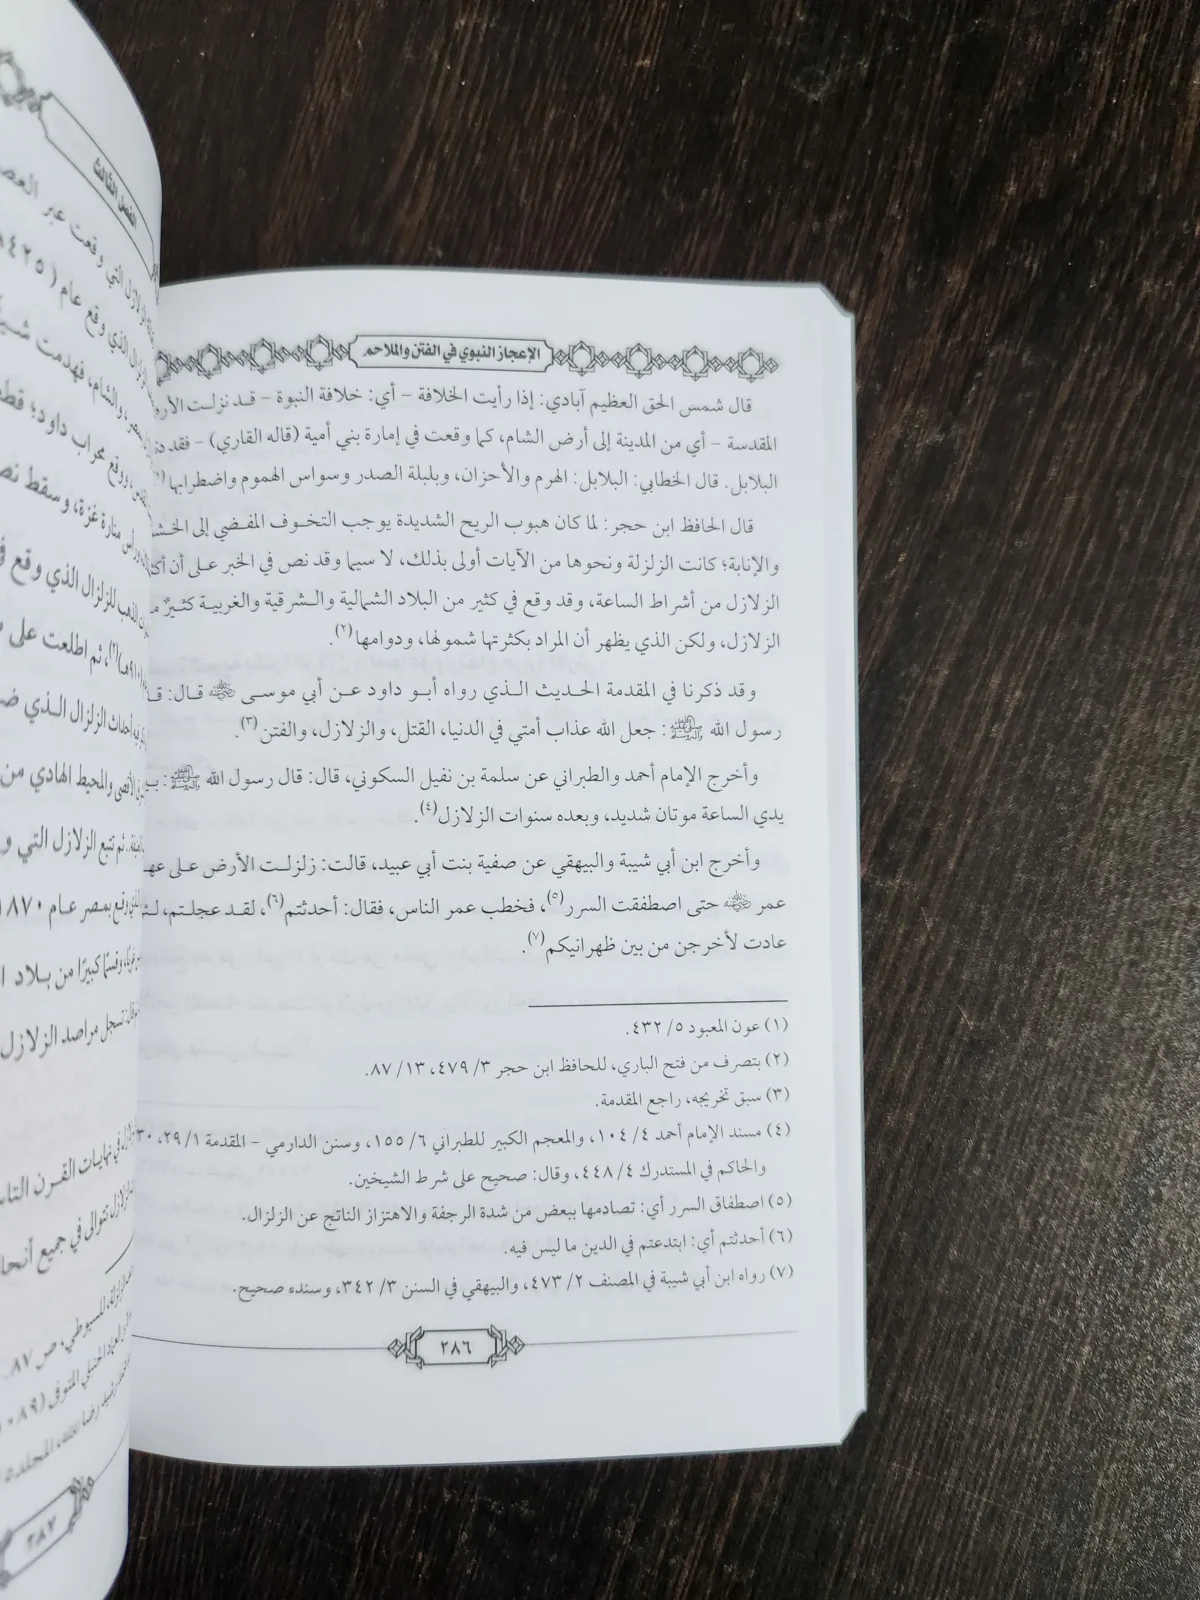 الإعجاز النبوي في الفتن والملاحم
قال شمس الحق العظيم آبادي: إذا رأيت الخلافة – أي: خلافة النبوة – قد نزلت
المقدسة – أي من المدينة إلى أرض الشام، كما وقعت في إمارة بني أمية (قاله القاري) – فقد
البلابل. قال الخطابي: البلابل: الهرم والأحزان، وبلبلة الصدر وسواس الهموم واضطرابها
قال الحافظ ابن حجر: لما كان هبوب الريح الشديدة يوجب التخوف المفضي إلى
والإنابة؛ كانت الزلزلة ونحوها من الآيات أولى بذلك، لا سيما وقد نص في الخبر على أن
الزلازل من أشراط الساعة، وقد وقع في كثير من البلاد الشمالية والشرقية والغربية كثيرٌ
الزلازل، ولكن الذي يظهر أن المراد بكثرتها شمولها، ودوامها(٢).
وقد ذكرنا في المقدمة الحديث الذي رواه أبو داود عن أبي موسى ﵁ قال:
رسول الله ﷺ: جعل الله عذاب أمتي في الدنيا، القتل، والزلازل، والفتن(٣).
وأخرج الإمام أحمد والطبراني عن سلمة بن نفيل السكوني، قال: قال رسول الله ﷺ:
يدي الساعة موتان شديد، وبعده سنوات الزلازل(٤).
وأخرج ابن أبي شيبة والبيهقي عن صفية بنت أبي عبيد، قالت: زلزلت الأرض على
عمر ﵁ حتى اصطفقت السرر(٥)، فخطب عمر الناس، فقال: أحدثتم(٦)، لقد عجلتم،
عادت لأخرجن من بين ظهرانيكم(٧).
(١) عون المعبود ٥/ ٤٣٢.
(٢) بتصرف من فتح الباري، للحافظ ابن حجر ٣/ ٤٧٩، ١٣/ ٨٧.
(٣) سبق تخريجه، راجع المقدمة.
(٤) مسند الإمام أحمد ٤/ ١٠٤، والمعجم الكبير للطبراني ٦/ ١٥٥، وسنن الدارمي – المقدمة ١/ ٢٩، ٣٠
والحاكم في المستدرك ٤/ ٤٤٨، وقال: صحيح على شرط الشيخين.
(٥) اصطفاق السرر أي: تصادمها ببعض من شدة الرجفة والاهتزاز الناتج عن الزلزال.
(٦) أحدثتم أي: ابتدعتم في الدين ما ليس فيه.
(٧) رواه ابن أبي شيبة في المصنف ٢/ ٤٧٣، والبيهقي في السنن ٣/ ٣٤٢، وسنده صحيح.
٢٨٦
الفصل الثالث
الزلازل التي وقعت عبر
الذي وقع عام (٤٢٥
والشام، فهدمت
ووقع محراب داود؛
ورأس منارة غزة، وسقط
للزلزال الذي وقع
ثم اطلعت على
أحداث الزلزال الذي
الأقصى والمحيط الهادي من
ثم تتبع الزلازل التي
وقع بمصر عام ١٨٧٠
وقسمًا كبيرًا من بلاد
تسجل مراصد الزلازل
في نهايات القرن
تتوالى في جميع
للسيوطي، ص ٨٧.
الحنبلي المتوفى (١٠٨٩
رشيد رضا
٢٨٧